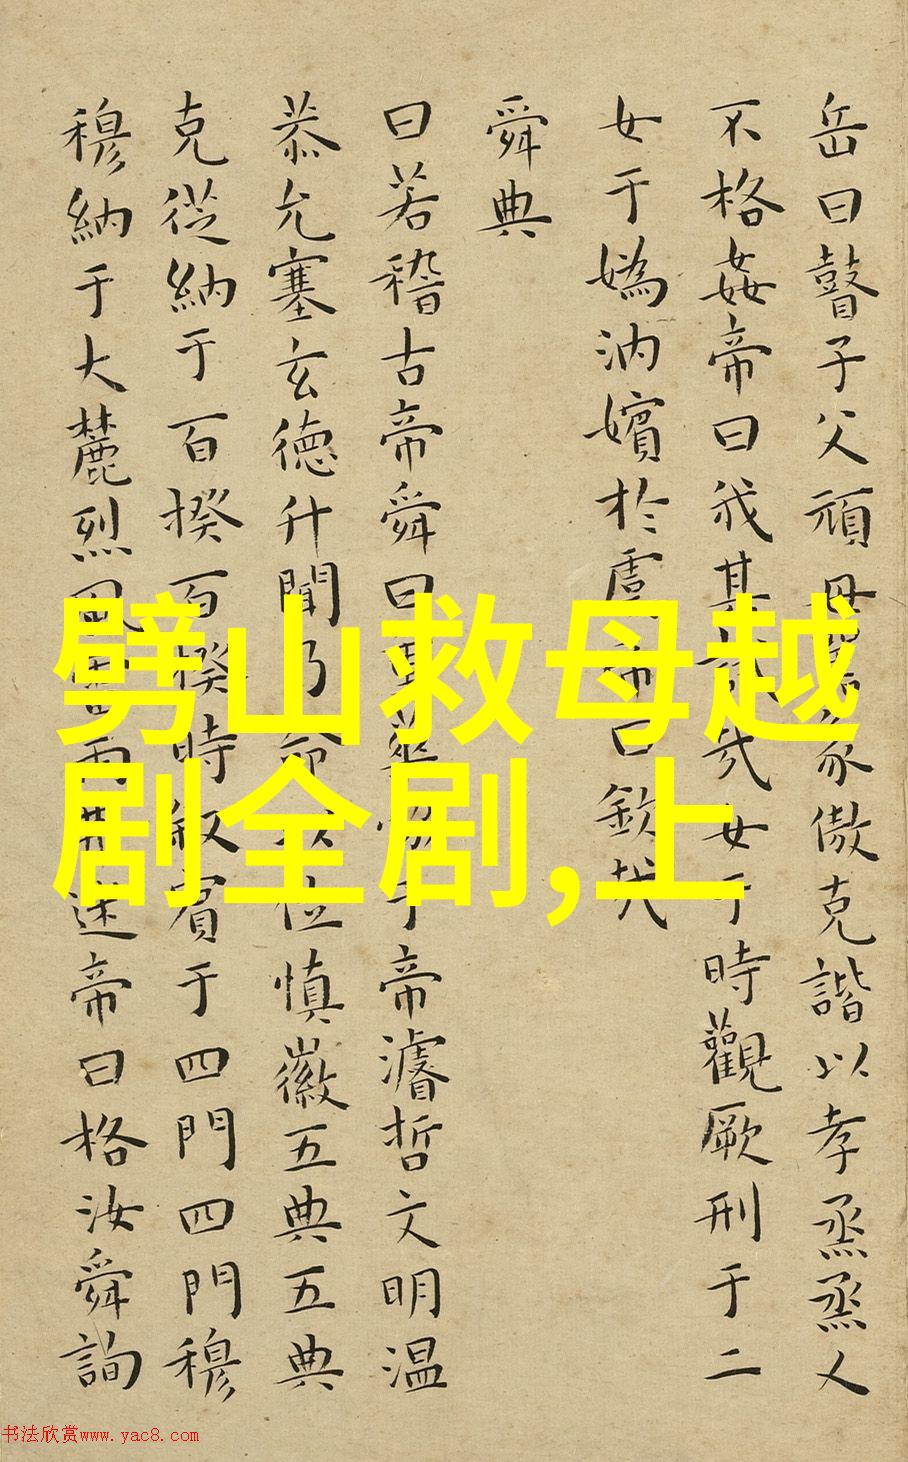 岳曰瞽子父頑母嚚象傲克諧以孝烝烝乂
不格姦帝曰我其試哉女于時觀厥刑于二
女于媯汭嬪於虞帝曰欽哉
舜典
曰若稽古帝舜曰重華協于帝濬哲文明温
恭允塞玄德升聞乃命以位慎徽五典五典
克從納于百揆百揆時叙賓于四門四門穆
穆納于大麓烈風雷雨弗迷帝曰格汝舜詢
劈山救母越
剧全剧,上
书法欣赏www.yac8.com